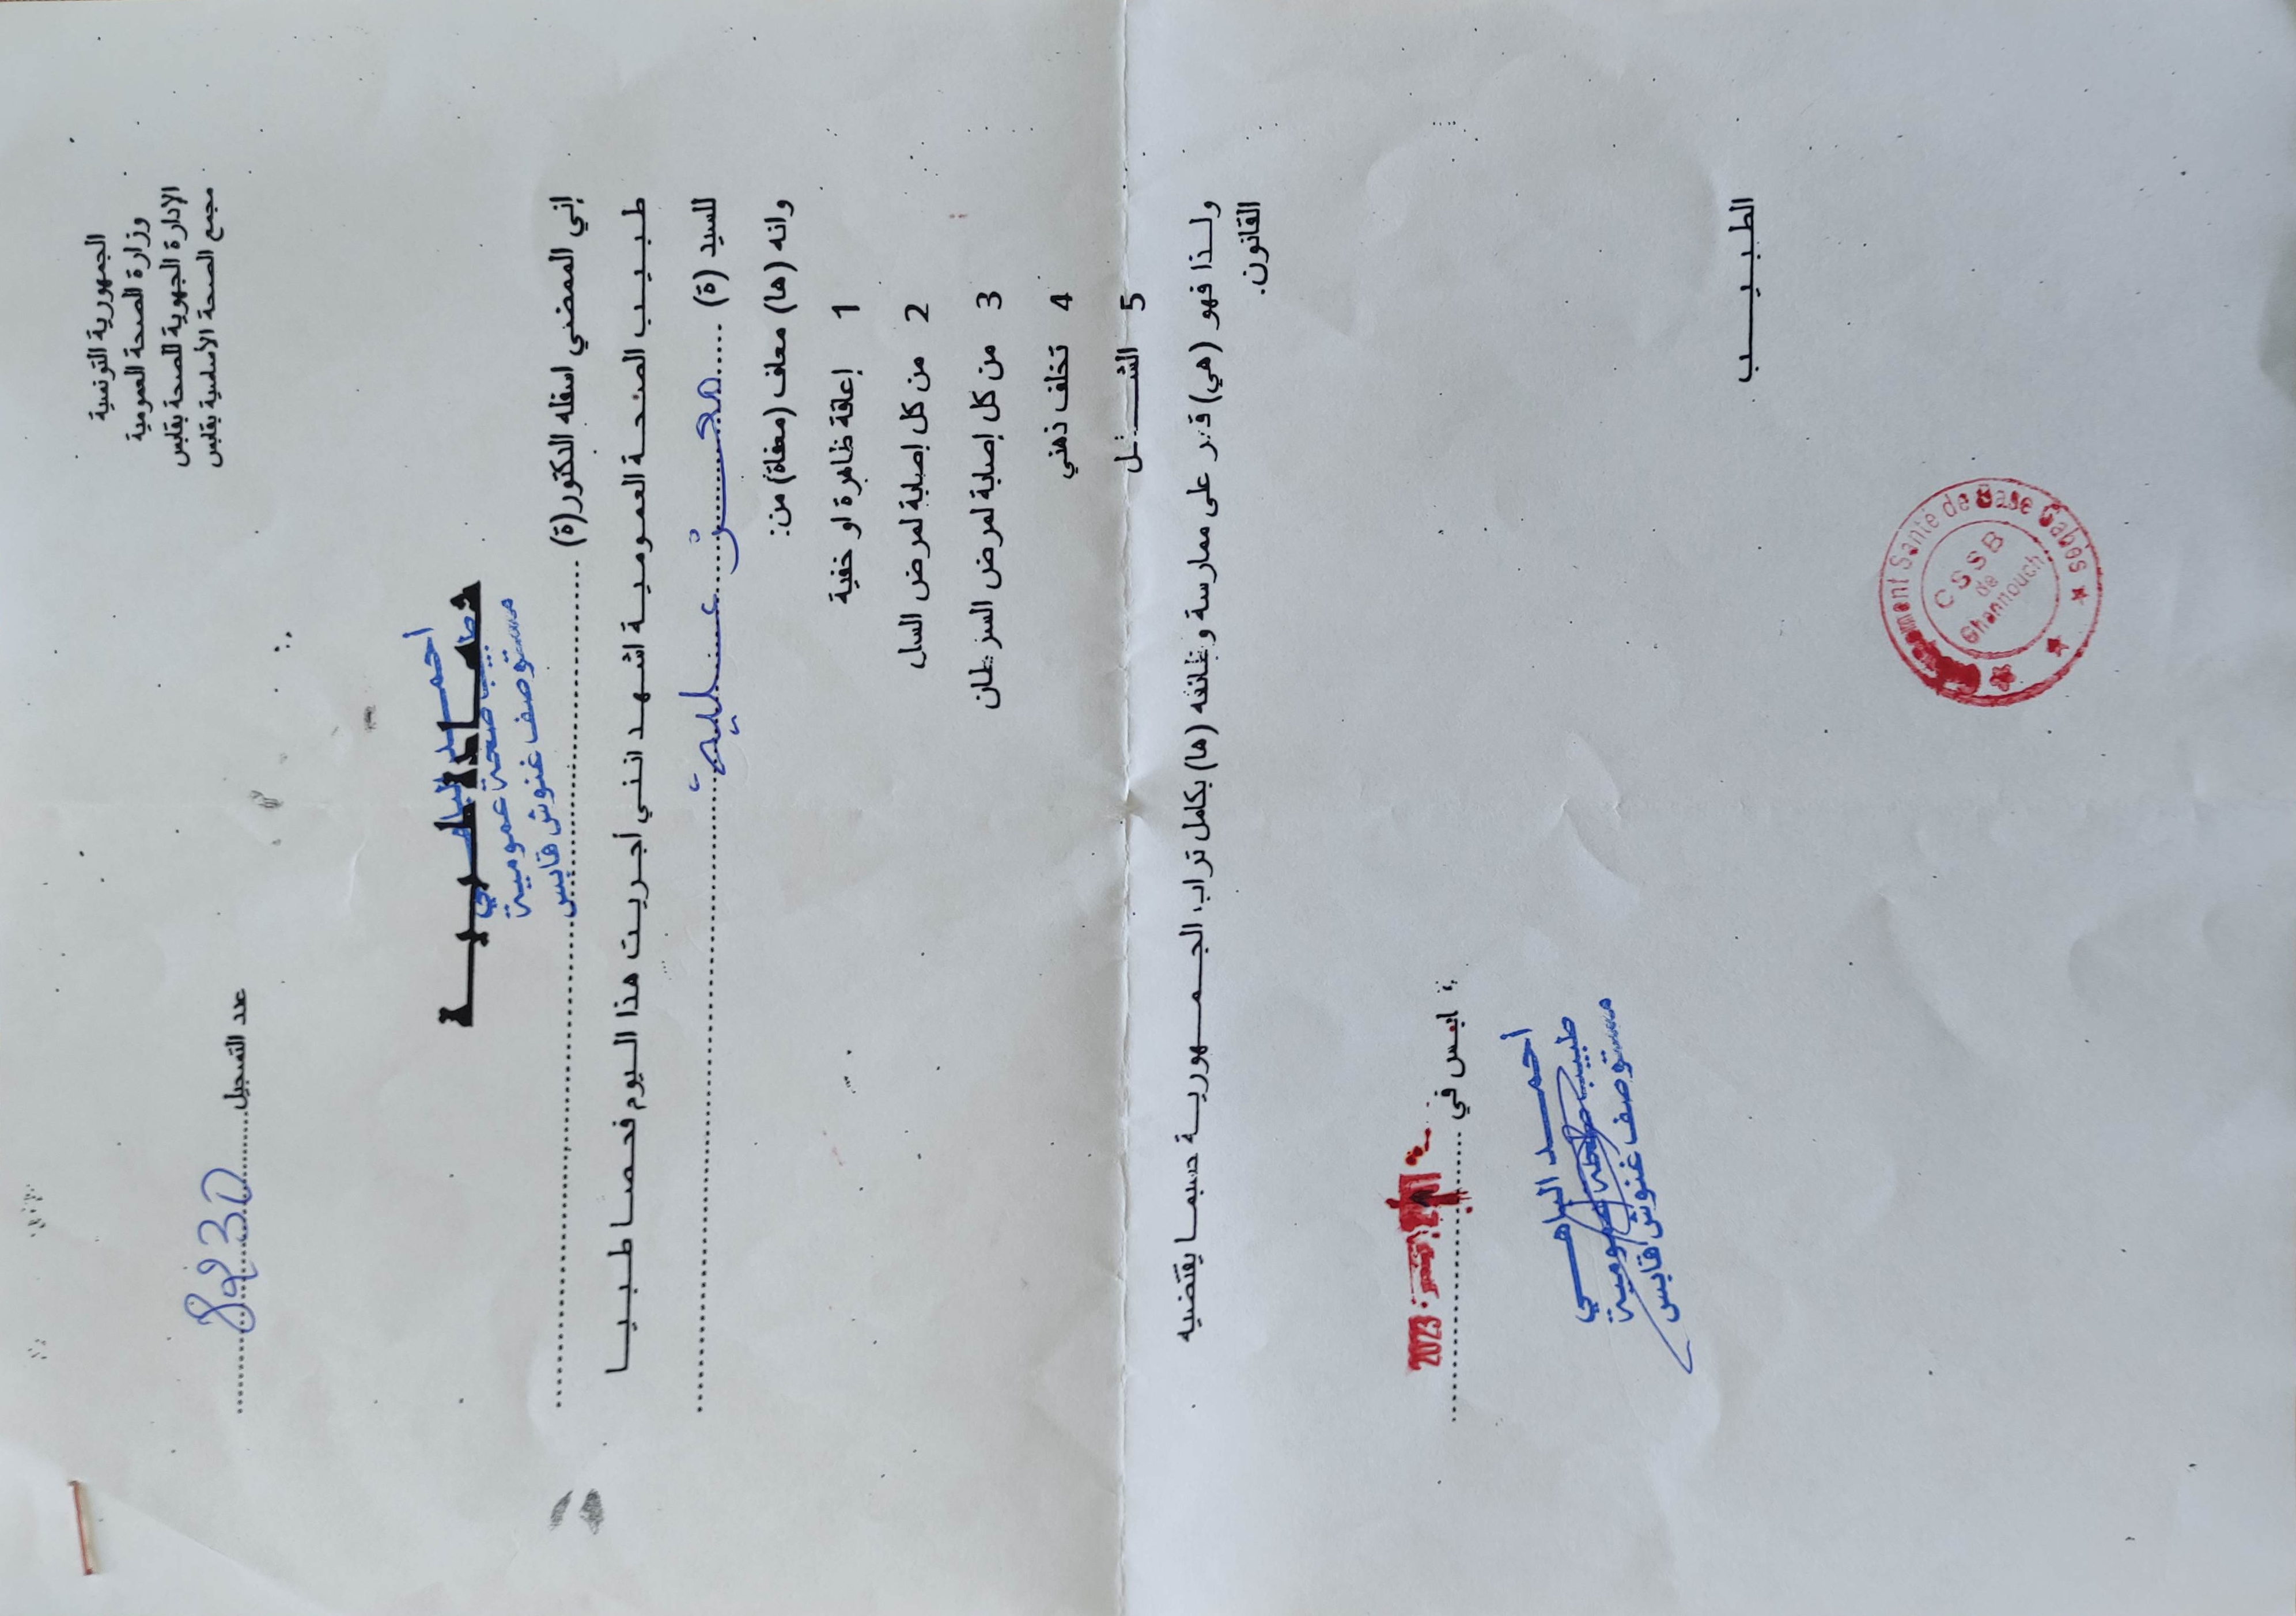 الجمهورية التونسية
وزارة الصحة العمومية
الإدارة الجهوية للصحة بقابس
مجمع الصحة الأساسية بقابس
عدد التسجيل 8230
شهادة طبية
أحمد الباهي
طبيب صحة عمومية
مستوصف غنوش قابس
إني الممضي اسفله الدكتور(ة)
طبيب الصحة العمومية اشهد انني أجريت هذا اليوم فحصا طبيا
للسيد (ة) محرز عليـة
وانه (ها) معاف (معفاة) من:
1 إعاقة ظاهرة او خفية
2 من كل إصابة لمرض السل
3 من كل إصابة لمرض السرطان
4 تخلف ذهني
5 الشلل
ولذا فهو (هي) قدر على ممارسة وظائفه (ها) بكامل تراب الجمهورية حسبما يقتضيه
القانون.
قابس في 2023
أحمد الباهي
طبيب صحة عمومية
مستوصف غنوش قابس
الطبيب
Santé de Base Gabès
CSSB
de
Ghannouch